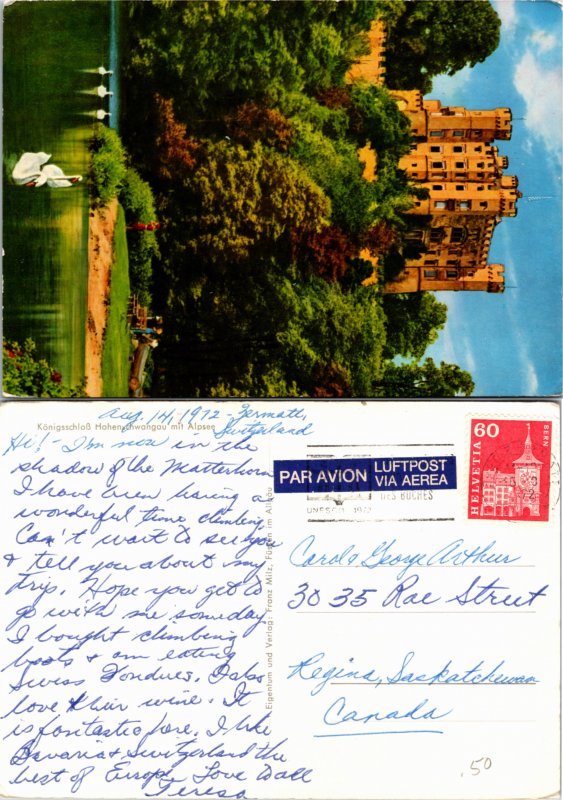 Aug. 14, 1972 - Zermatt,
Switzerland
Königsschloß Hohenschwangau mit Alpsee
Hi! - I'm now in the
shadow of the Matterhorn
I have been having a
wonderful time climbing.
Can't wait to see you
& tell you about my
trip. Hope you get to
go with me someday
I bought climbing
boots & am eating
Swiss Fondues. I also
love their wine. It
is fantastic here. I like
Bavaria & Switzerland the
best of Europe. Love to all
Teresa
Eigentum und Verlag: Franz Milz, Füssen im Allgäu
PAR AVION
LUFTPOST
VIA AEREA
DES BUCHES
UNESCO 1972
60
HELVETIA
BERN
Carole George Arthur
3035 Rae Street
Regina, Saskatchewan
Canada
.50